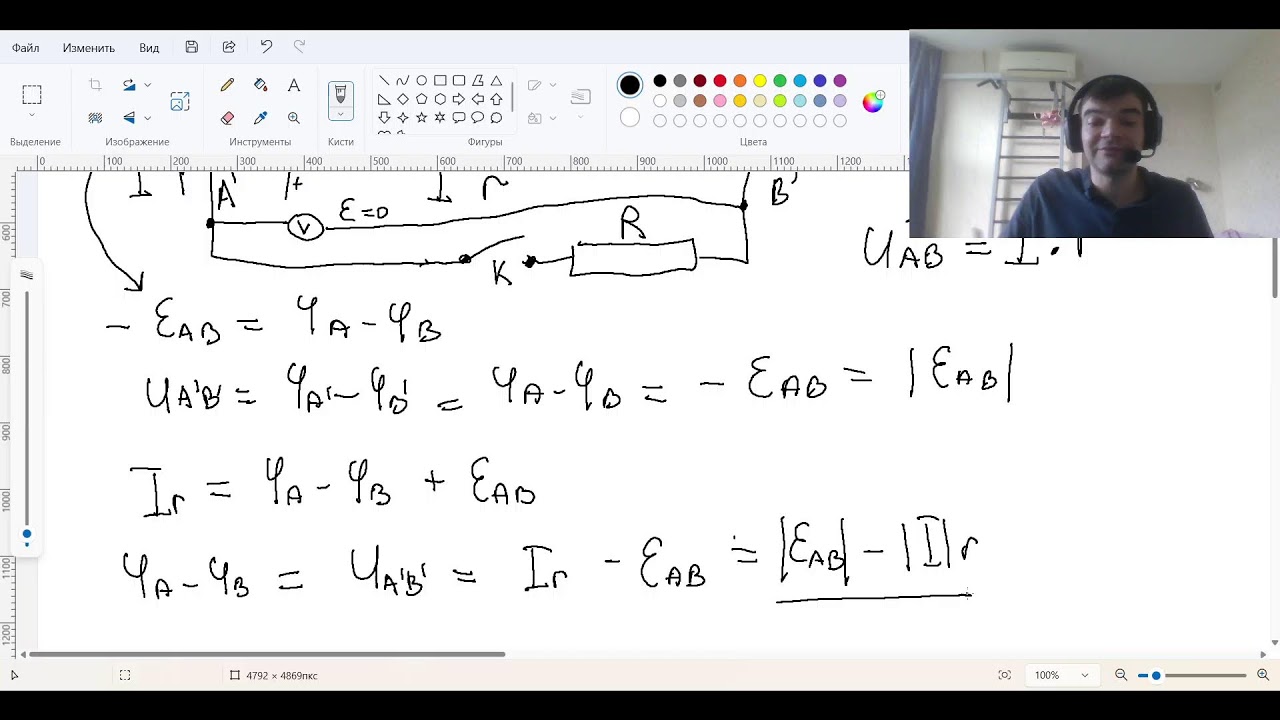 Файл Изменить Вид
Выделение Изображение Инструменты Кисти Фигуры Цвета
0 100 200 300 400 500 600 700 800 900 1000 1100 1200
600
700
800
900
1000
1100
1200
I r A' + I r B'
V ε=0 R
K
U_AB = I · r
- ε_AB = φ_A - φ_B
U_A'B' = φ_A' - φ_B' = φ_A - φ_B = - ε_AB = |ε_AB|
Ir = φ_A - φ_B + ε_AB
φ_A - φ_B = U_A'B' = Ir - ε_AB = |ε_AB| - |I|r
4792 × 4869пкс 100%